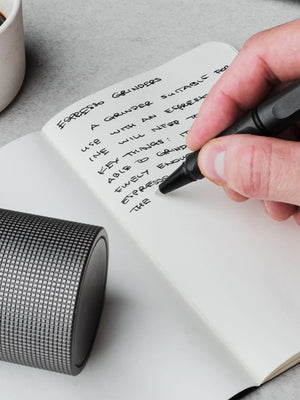 ESPRESSO GRINDERS
A GRINDER SUITABLE FOR
USE WITH AN ESPRESSO
INE WILL NEED TO
KEY THINGS. IT
ABLE TO GRIND
FINELY ENOU
ESPRESS
THE